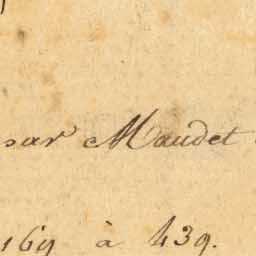 par Maudet
169 à 439.